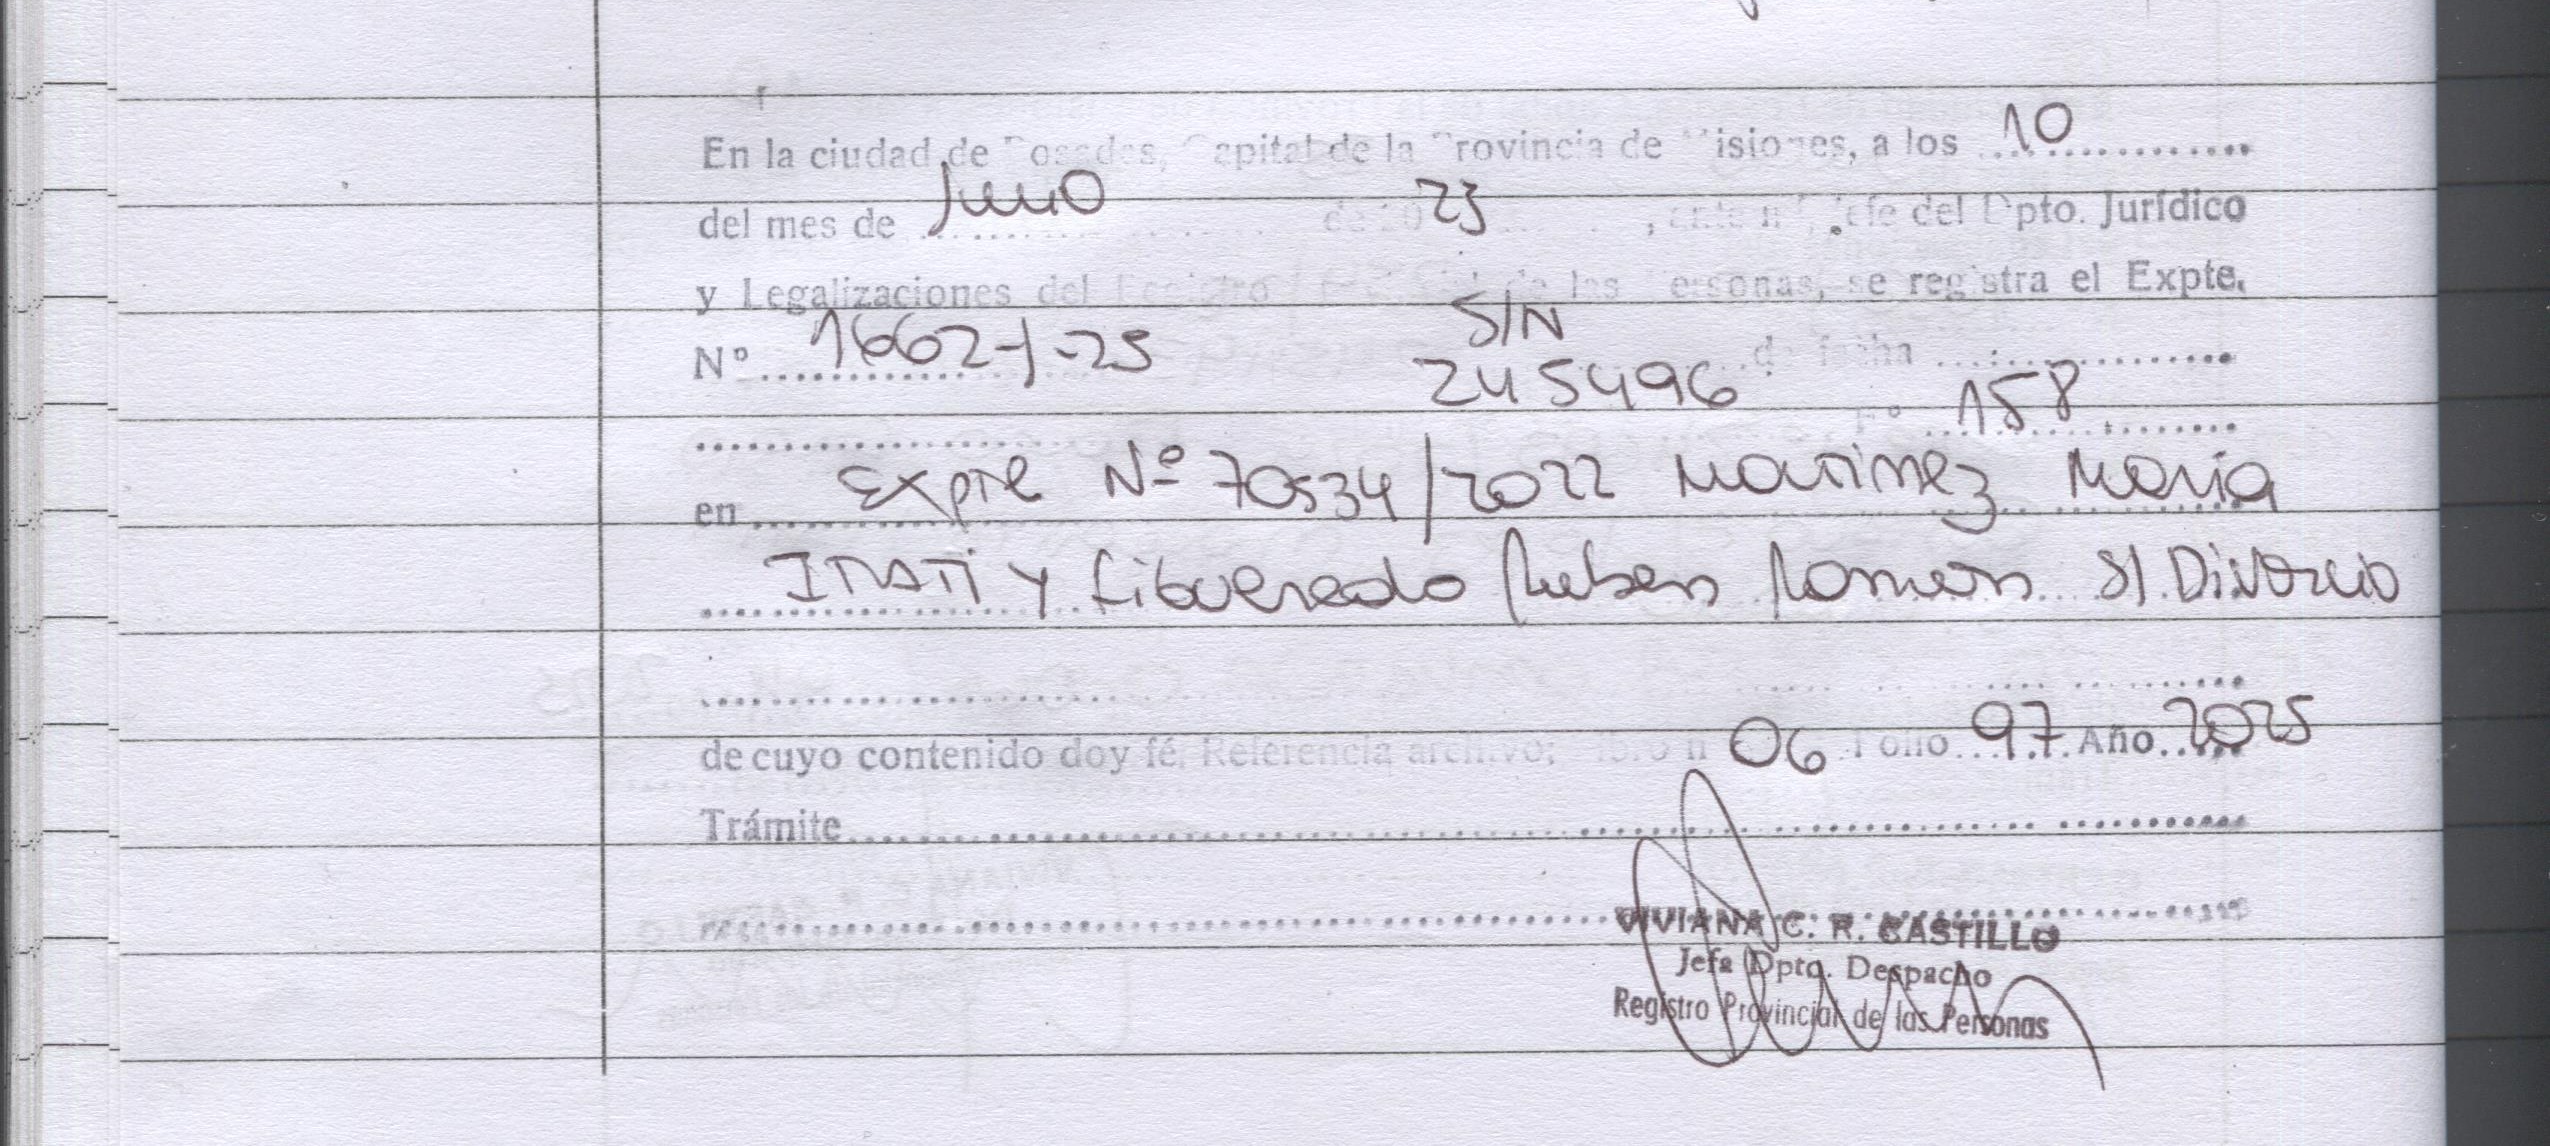 En la ciudad de Posadas, Capital de la Provincia de Misiones, a los 10
del mes de Junio de 20 23, ante mí, Jefe del Dpto. Jurídico
y Legalizaciones del Registro de las Personas, se registra el Expte.
Nº 1662-J-25 S/N de fecha
245496 Fº 158
en Expte Nº 70534/2022 Martinez Maria
Itati y Figueredo Ruben Ramon S/ Divorcio
de cuyo contenido doy fé. Referencia archivo: Libro nº 06 Folio 97 Año 2025
Trámite
VIVIANA C. R. CASTILLO
Jefa Dpto. Despacho
Registro Provincial de las Personas